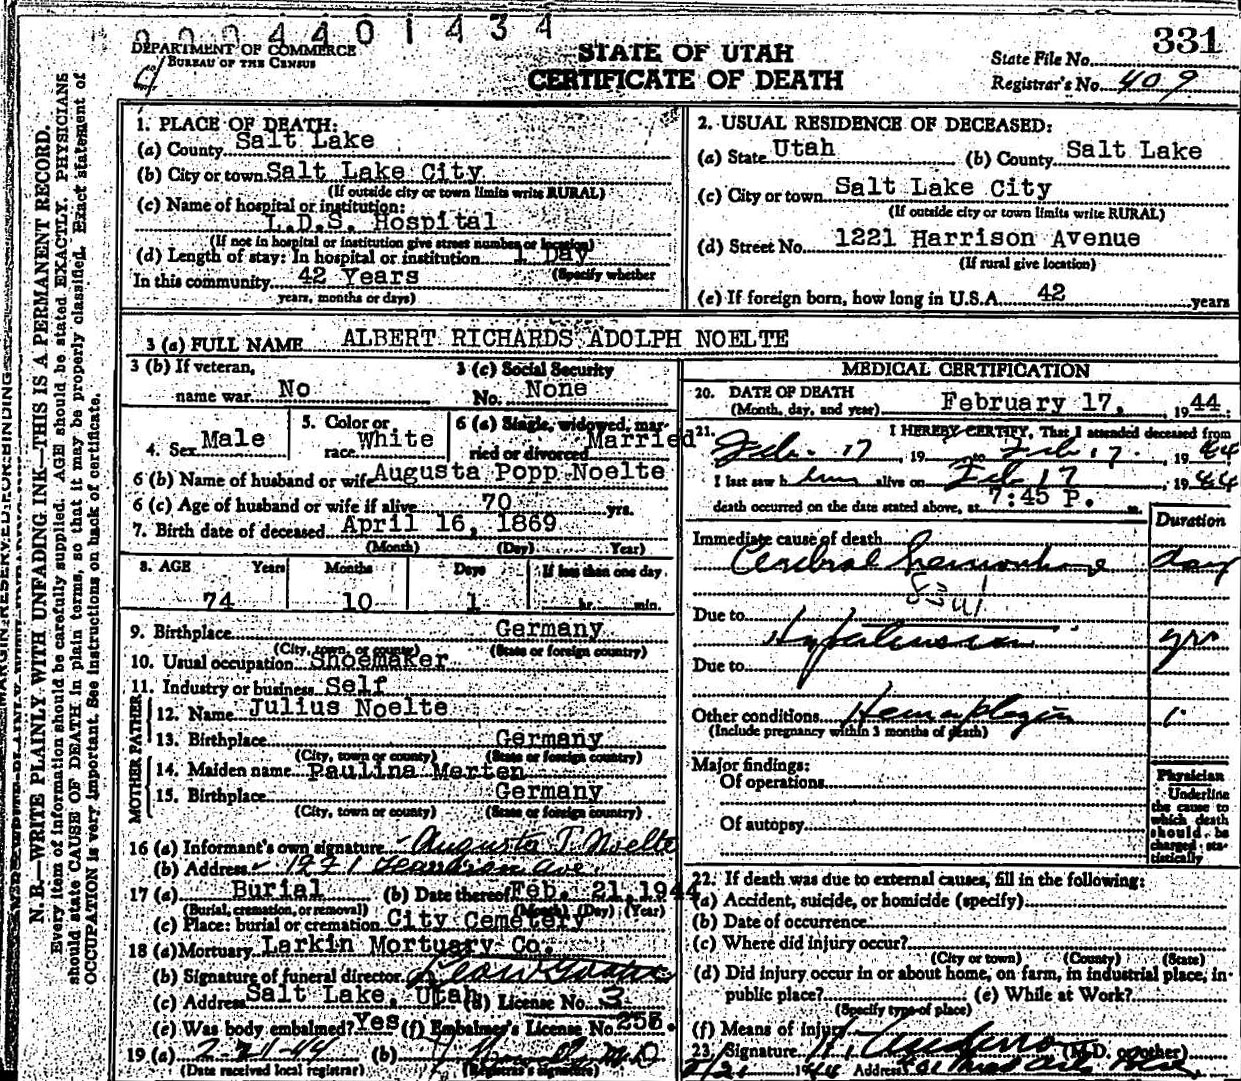 0004401434
DEPARTMENT OF COMMERCE
BUREAU OF THE CENSUS
STATE OF UTAH
CERTIFICATE OF DEATH
331
State File No.
Registrar's No. 409
MARGIN RESERVED FOR BINDING
N. B.—WRITE PLAINLY WITH UNFADING INK—THIS IS A PERMANENT RECORD.
Every item of information should be carefully supplied. AGE should be stated EXACTLY. PHYSICIANS
should state CAUSE OF DEATH in plain terms, so that it may be properly classified. Exact statement of
OCCUPATION is very important. See instructions on back of certificate.
1. PLACE OF DEATH:
(a) County Salt Lake
(b) City or town Salt Lake City
(If outside city or town limits write RURAL)
(c) Name of hospital or institution:
L.D.S. Hospital
(If not in hospital or institution give street number or location)
(d) Length of stay: In hospital or institution 1 Day
(Specify whether
In this community 42 Years
years, months or days)
2. USUAL RESIDENCE OF DECEASED:
(a) State Utah (b) County Salt Lake
(c) City or town Salt Lake City
(If outside city or town limits write RURAL)
(d) Street No. 1221 Harrison Avenue
(If rural give location)
(e) If foreign born, how long in U.S.A. 42 years
3 (a) FULL NAME ALBERT RICHARDS ADOLPH NOELTE
3 (b) If veteran,
name war No
3 (c) Social Security
No. None
4. Sex Male
5. Color or
race White
6 (a) Single, widowed, mar-
ried or divorced Married
6 (b) Name of husband or wife Augusta Popp Noelte
6 (c) Age of husband or wife if alive 70 yrs.
7. Birth date of deceased April 16, 1869
(Month) (Day) (Year)
8. AGE Years Months Days If less than one day
74 10 1 hr. min.
9. Birthplace Germany
(City, town, or county) (State or foreign country)
10. Usual occupation Shoemaker
11. Industry or business Self
FATHER
12. Name Julius Noelte
13. Birthplace Germany
(City, town or county) (State or foreign country)
MOTHER
14. Maiden name Paulina Merten
15. Birthplace Germany
(City, town or county) (State or foreign country)
16 (a) Informant's own signature Augusta T Noelte
(b) Address Ave.
17 (a) Burial (b) Date thereof Feb. 21, 1944
(Burial, cremation, or removal) (Month) (Day) (Year)
(c) Place: burial or cremation City Cemetery
18 (a) Mortuary Larkin Mortuary Co.
(b) Signature of funeral director
(c) Address Salt Lake, Utah (d) License No. 3
(e) Was body embalmed? Yes (f) Embalmer's License No.
19 (a) 2-21-44 (b) M D
(Date received local registrar) (Registrar's signature)
MEDICAL CERTIFICATION
20. DATE OF DEATH
(Month, day, and year) February 17, 1944.
21. I HEREBY CERTIFY, That I attended deceased from
Feb. 17, 19 to Feb 17, 1944
I last saw him alive on Feb 17, 1944
death occurred on the date stated above, at 7:45 P. m.
Duration
Immediate cause of death
Cerebral hemorrhage day
Due to
Hypertension yrs
Due to
Other conditions Hemiplegia
(Include pregnancy within 3 months of death)
Major findings:
Of operations
Of autopsy
Physician
Underline
the cause to
which death
should be
charged sta-
tistically
22. If death was due to external causes, fill in the following:
(a) Accident, suicide, or homicide (specify)
(b) Date of occurrence
(c) Where did injury occur?
(City or town) (County) (State)
(d) Did injury occur in or about home, on farm, in industrial place, in
public place? (e) While at Work?
(Specify type of place)
(f) Means of Injury
23. Signature (M.D. or other)
2/21 1944 Address